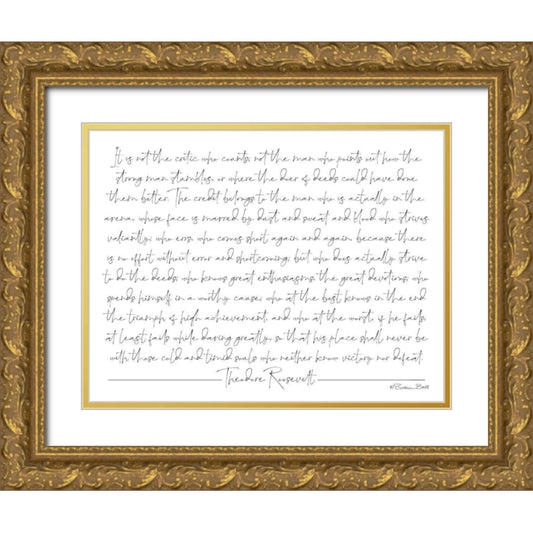 It is not the critic who counts, not the man who points out how the
strong man stumbles, or where the doer of deeds could have done
them better. The credit belongs to the man who is actually in the
arena, whose face is marred by dust and sweat and blood who strives
valiantly; who errs, who comes short again and again, because there
is no effort without error and shortcoming; but who does actually strive
to do the deeds; who knows great enthusiasms, the great devotions; who
spends himself in a worthy cause; who at the best knows in the end
the triumph of high achievement, and who at the worst, if he fails,
at least fails while daring greatly, so that his place shall never be
with those cold and timid souls who neither know victory nor defeat.
Theodore Roosevelt